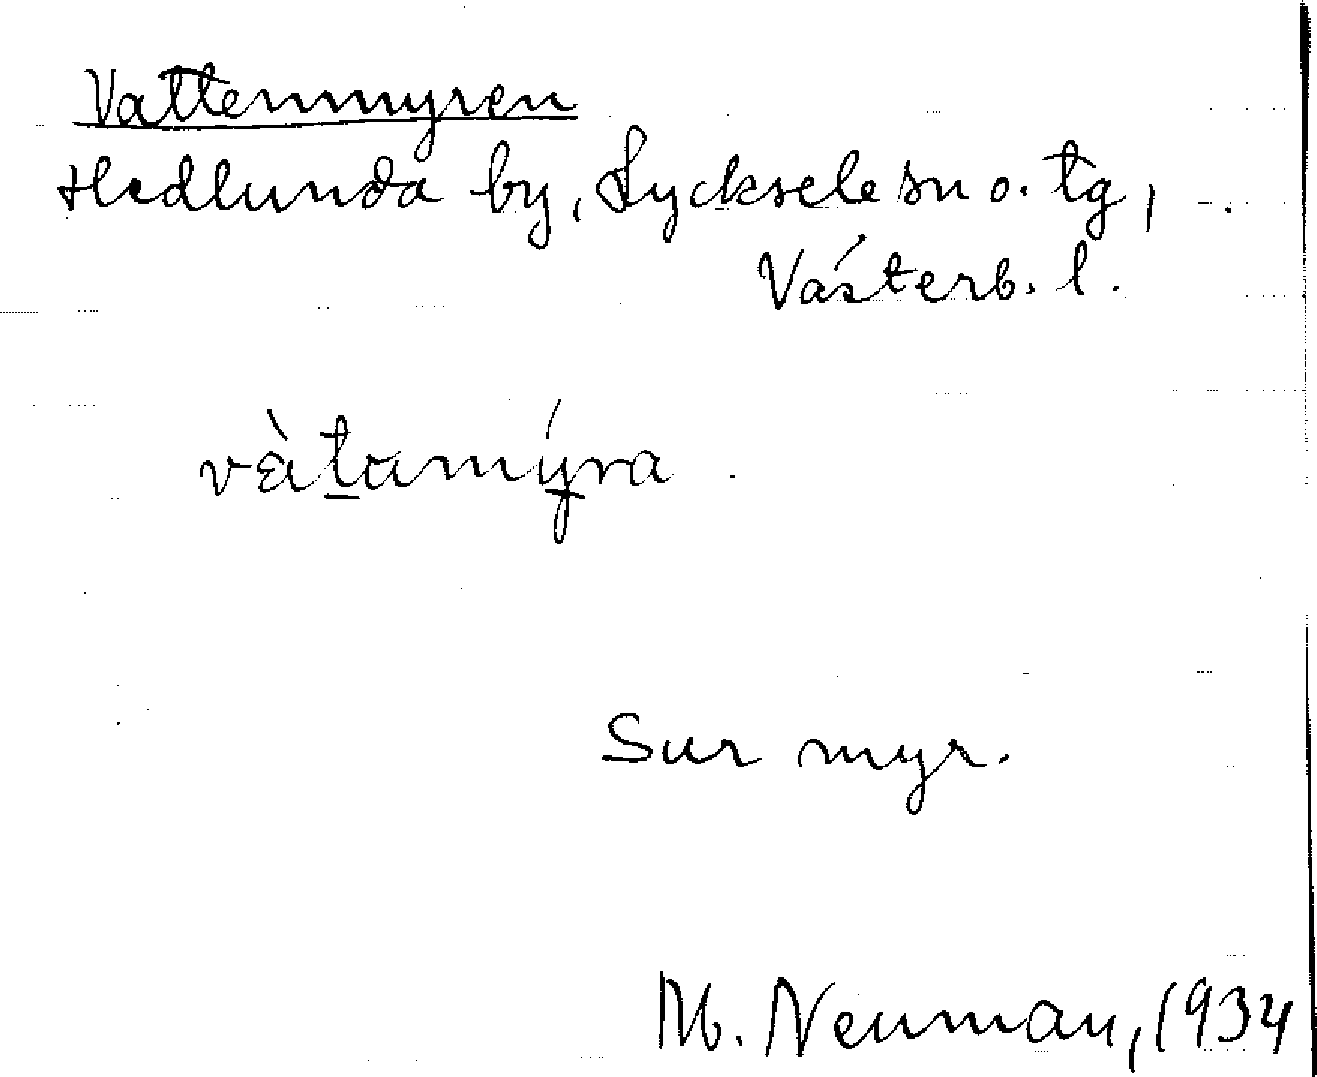 Vattenmyren
Hedlunda by, Lycksele sn o. tg,
Västerb. l.
vàtamýra.
Sur myr.
M. Neuman, 1934